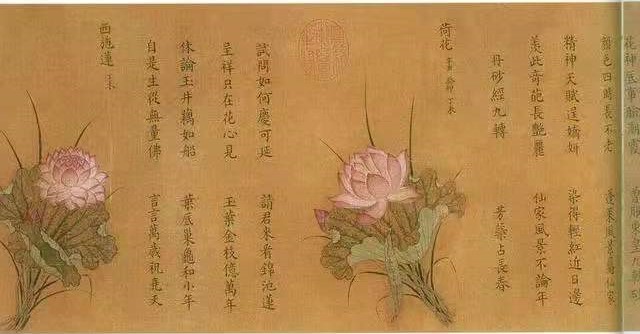 花神
顏色四時長不老 蓬萊風景屬仙家
精神天賦逞嬌妍 染得輕紅近日邊
羨此奇葩長艷麗 仙家風景不論年
丹砂經九轉 芳蘂占長春
荷花
試問如何慶可延 請君來看錦池蓮
呈祥只在花心見 玉葉金枝億萬年
休論玉井藕如船 葉底巢龜和小年
自是生從無量佛 言言萬歲祝堯天
西池蓮